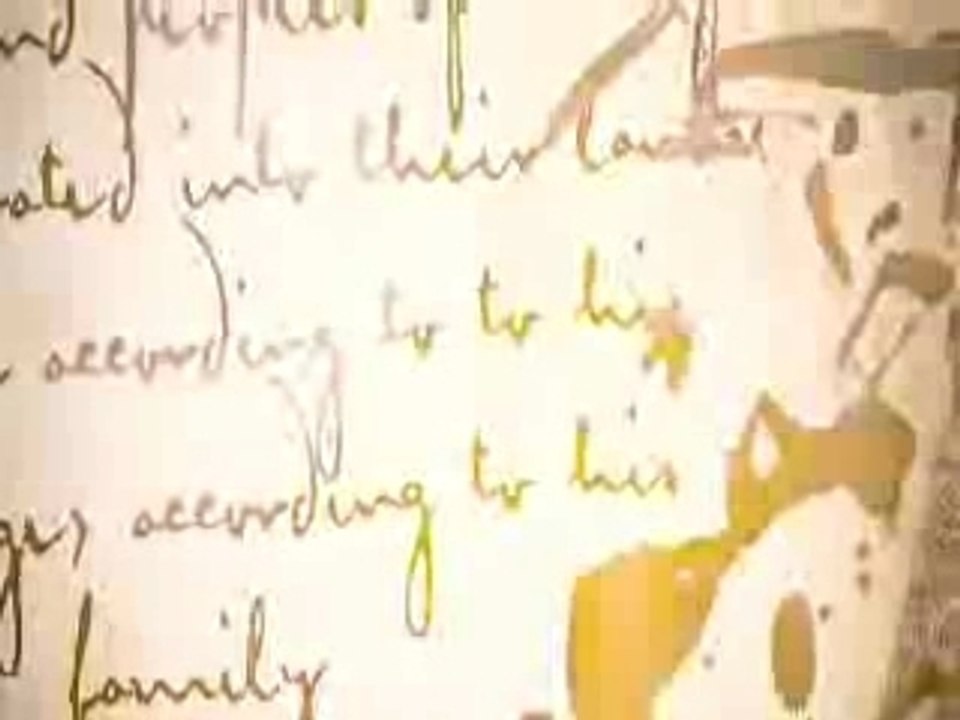 nd peoples of
ated into their lan
according to to his
ges according to his
family